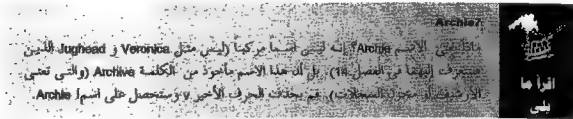 Archie?
ماذا يعني الاسم Archie؟ إنه ليس اسما مركبا (ليس مثل Veronica و Jughead الذين
ستتعرف إليهما في الفصل 14) بل إن هذا الاسم مأخوذ من الكلمة Archive (والتي تعني
الأرشيف أو مخزن السجلات) قم بحذف الحرف الأخير v وستحصل على اسم Archie
اقرأ ما
يلي